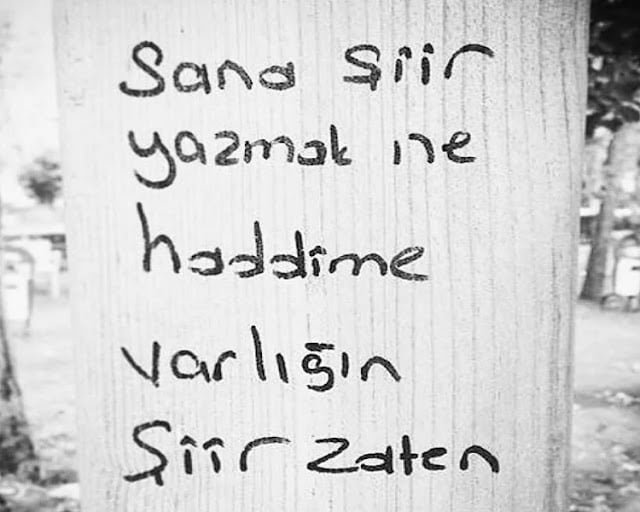 Sana şiir
yazmak ne
haddime
varlığın
Şiir zaten